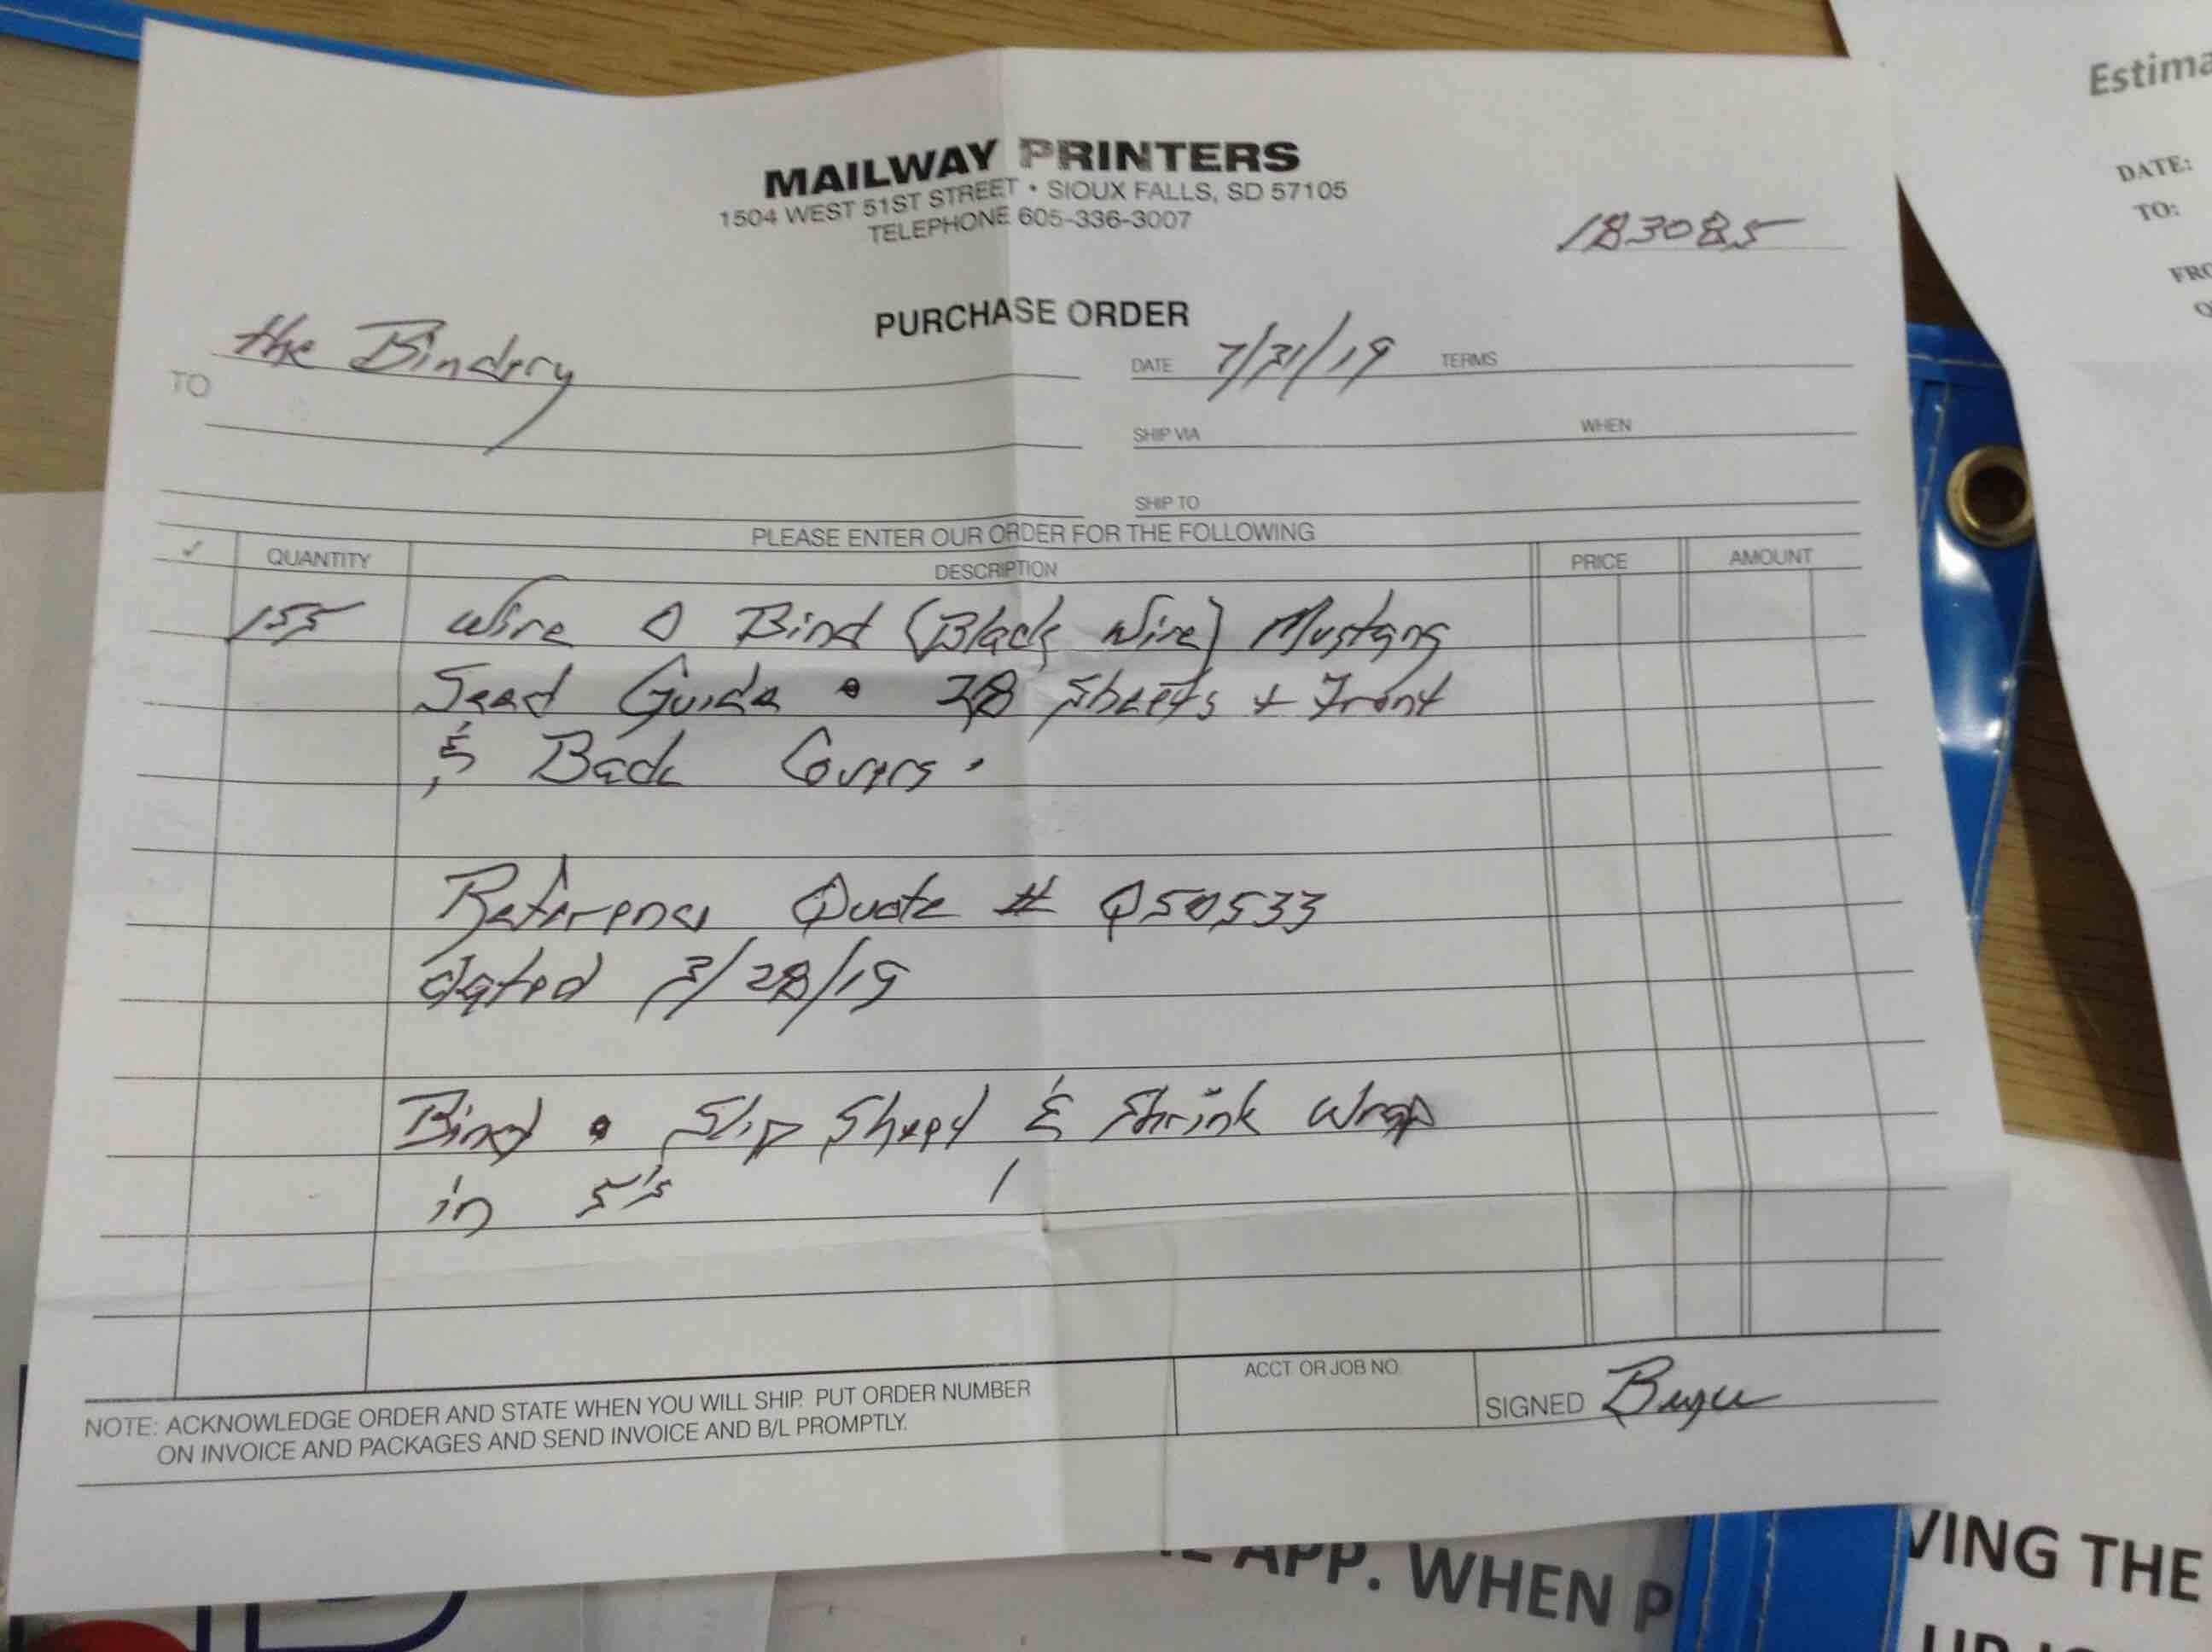 MAILWAY PRINTERS
1504 WEST 51ST STREET • SIOUX FALLS, SD 57105
TELEPHONE 605-336-3007
183085
PURCHASE ORDER
TO the Bindery
DATE 7/31/19 TERMS
SHIP VIA WHEN
SHIP TO
PLEASE ENTER OUR ORDER FOR THE FOLLOWING
✓ QUANTITY DESCRIPTION PRICE AMOUNT
155 Wire O Bind (Black Wire) Mustang
Seed Guide • 28 Sheets + Front
& Back Covers.
Reference Quote # Q50533
dated 3/28/19
Bind • Slip Sheet & Shrink Wrap
in 5's
NOTE: ACKNOWLEDGE ORDER AND STATE WHEN YOU WILL SHIP. PUT ORDER NUMBER
ON INVOICE AND PACKAGES AND SEND INVOICE AND B/L PROMPTLY.
ACCT OR JOB NO.
SIGNED
Estima
DATE:
TO:
FRO
APP. WHEN P
VING THE